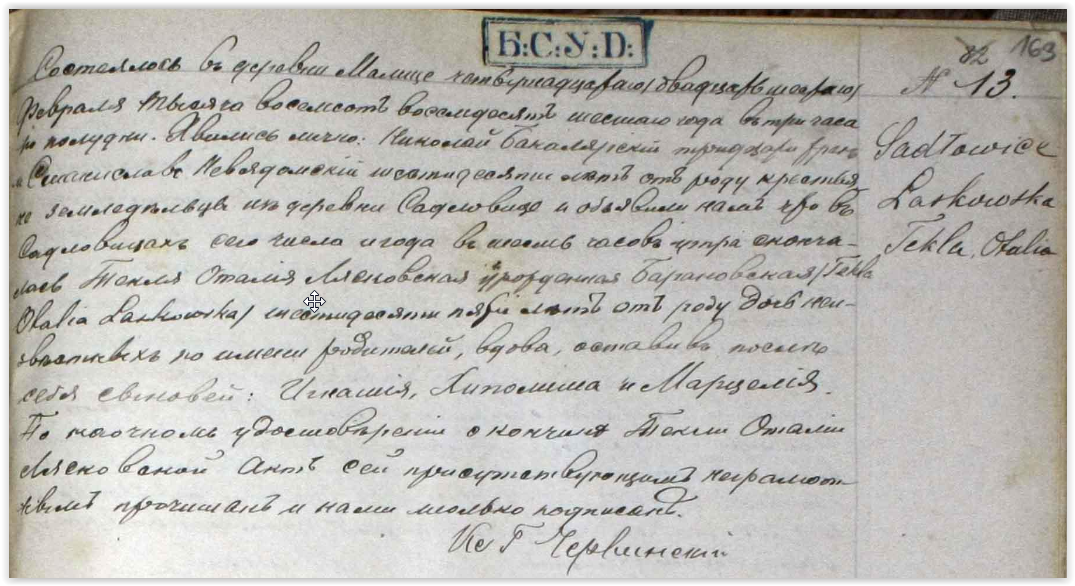 Б:С:У:D:
82 163
№ 13.
Sadłowice
Laskowska
Tekla, Otalia
Состоялось въ деревни Малице четырнадцатаго/двадцать шестаго/
Февраля тысяча восемсотъ восемдесятъ шестаго года въ три часа
по полудни. Явились лично: Николай Бакалярскій тридцати
и Станиславъ Невядомскій шестидесяти лѣтъ отъ роду крестья
не земледѣльцы изъ деревни Садловице и объявили намъ что въ
Садловицахъ сего числа и года въ шесть часовъ утра сконча-
лась Текля Оталія Лясковская урожденная Барановская/Tekla
Otalia Laskowska/ шестидесяти пяти лѣтъ отъ роду дочь неи-
звѣстныхъ по имени родителей, вдова, оставивъ послѣ
себя сыновей: Игнатія, Хиполита и Марцелія.
По наочномъ удостовѣреніи о кончинѣ Текли Оталіи
Лясковской Актъ сей присутствующимъ неграмот-
нымъ прочитанъ и нами только подписанъ.
Кс Г Червинскій